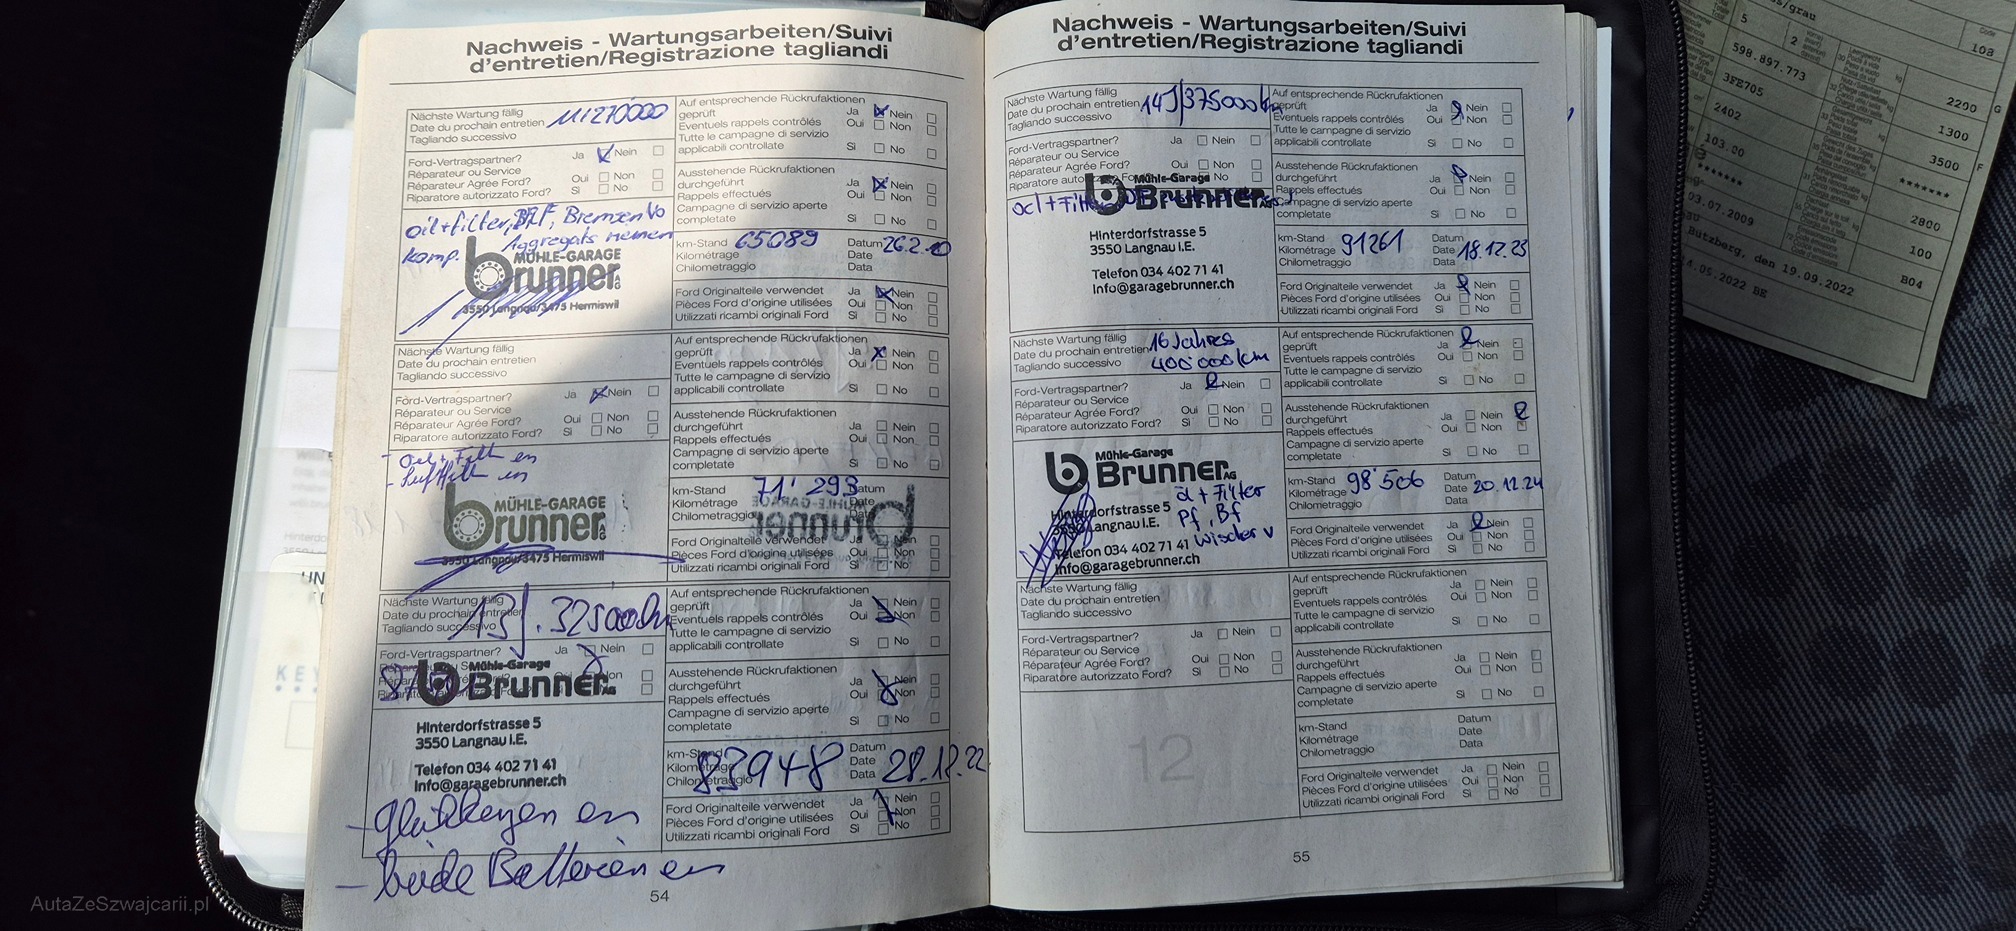 Nachweis - Wartungsarbeiten/Suivi
d'entretien/Registrazione tagliandi
Nächste Wartung fällig
Date du prochain entretien
Tagliando successivo
Ford-Vertragspartner? Ja Nein
Réparateur ou Service
Réparateur Agrée Ford? Oui Non
Riparatore autorizzato Ford? Si No
oil+filter, Bremsen Vo
komp. Aggregats riemen
MÜHLE-GARAGE
brunner AG
3550 Langnau/3475 Hermiswil
Auf entsprechende Rückrufaktionen
geprüft Ja Nein
Eventuels rappels contrôlés Oui Non
Tutte le campagne di servizio
applicabili controllate Si No
Ausstehende Rückrufaktionen
durchgeführt Ja Nein
Rappels effectués Oui Non
Campagne di servizio aperte
completate Si No
km-Stand 65089 Datum 26.2.
Kilométrage Date
Chilometraggio Data
Ford Originalteile verwendet Ja Nein
Pièces Ford d'origine utilisées Oui Non
Utilizzati ricambi originali Ford Si No
Nächste Wartung fällig
Date du prochain entretien
Tagliando successivo
Ford-Vertragspartner? Ja Nein
Réparateur ou Service
Réparateur Agrée Ford? Oui Non
Riparatore autorizzato Ford? Si No
MÜHLE-GARAGE
brunner AG
3550 Langnau/3475 Hermiswil
Auf entsprechende Rückrufaktionen
geprüft Ja Nein
Eventuels rappels contrôlés Oui Non
Tutte le campagne di servizio
applicabili controllate Si No
Ausstehende Rückrufaktionen
durchgeführt Ja Nein
Rappels effectués Oui Non
Campagne di servizio aperte
completate Si No
km-Stand 71'293 Datum
Kilométrage Date
Chilometraggio Data
Ford Originalteile verwendet Ja Nein
Pièces Ford d'origine utilisées Oui Non
Utilizzati ricambi originali Ford Si No
Nächste Wartung fällig
Date du prochain entretien 13J.
Tagliando successivo
Ford-Vertragspartner? Ja Nein
Mühle-Garage
Brunner AG
Hinterdorfstrasse 5
3550 Langnau i.E.
Telefon 034 402 71 41
Info@garagebrunner.ch
- beide Batterien
Auf entsprechende Rückrufaktionen
geprüft Ja Nein
Eventuels rappels contrôlés Oui Non
Tutte le campagne di servizio
applicabili controllate Si No
Ausstehende Rückrufaktionen
durchgeführt Ja Nein
Rappels effectués Oui Non
Campagne di servizio aperte
completate Si No
km-Stand Datum
Kilométrage 83948 Date 28.12.22
Chilometraggio Data
Ford Originalteile verwendet Ja Nein
Pièces Ford d'origine utilisées Oui Non
Utilizzati ricambi originali Ford Si No
54
Nachweis - Wartungsarbeiten/Suivi
d'entretien/Registrazione tagliandi
Nächste Wartung fällig
Date du prochain entretien 14J/375000km
Tagliando successivo
Ford-Vertragspartner? Ja Nein
Réparateur ou Service
Réparateur Agrée Ford? Oui Non
Riparatore autorizzato Ford? Si No
Mühle-Garage
Brunner AG
Hinterdorfstrasse 5
3550 Langnau i.E.
Telefon 034 402 71 41
Info@garagebrunner.ch
Auf entsprechende Rückrufaktionen
geprüft Ja Nein
Eventuels rappels contrôlés Oui Non
Tutte le campagne di servizio
applicabili controllate Si No
Ausstehende Rückrufaktionen
durchgeführt Ja Nein
Rappels effectués Oui Non
Campagne di servizio aperte
completate Si No
km-Stand 91261 Datum
Kilométrage Date 18.12.23
Chilometraggio Data
Ford Originalteile verwendet Ja Nein
Pièces Ford d'origine utilisées Oui Non
Utilizzati ricambi originali Ford Si No
Nächste Wartung fällig 16 Jahres
Date du prochain entretien
Tagliando successivo 400'000/km
Ford-Vertragspartner? Ja Nein
Réparateur ou Service
Réparateur Agrée Ford? Oui Non
Riparatore autorizzato Ford? Si No
Mühle-Garage
Brunner AG
Hinterdorfstrasse 5 öl + Filter
3550 Langnau i.E. Pf, Bf
Telefon 034 402 71 41 Wischer v
Info@garagebrunner.ch
Auf entsprechende Rückrufaktionen
geprüft Ja Nein
Eventuels rappels contrôlés Oui Non
Tutte le campagne di servizio
applicabili controllate Si No
Ausstehende Rückrufaktionen
durchgeführt Ja Nein
Rappels effectués Oui Non
Campagne di servizio aperte
completate Si No
km-Stand 98'506 Datum
Kilométrage Date 20.12.24
Chilometraggio Data
Ford Originalteile verwendet Ja Nein
Pièces Ford d'origine utilisées Oui Non
Utilizzati ricambi originali Ford Si No
Nächste Wartung fällig
Date du prochain entretien
Tagliando successivo
Ford-Vertragspartner? Ja Nein
Réparateur ou Service
Réparateur Agrée Ford? Oui Non
Riparatore autorizzato Ford? Si No
12
Auf entsprechende Rückrufaktionen
geprüft Ja Nein
Eventuels rappels contrôlés Oui Non
Tutte le campagne di servizio
applicabili controllate Si No
Ausstehende Rückrufaktionen
durchgeführt Ja Nein
Rappels effectués Oui Non
Campagne di servizio aperte
completate Si No
km-Stand Datum
Kilométrage Date
Chilometraggio Data
Ford Originalteile verwendet Ja Nein
Pièces Ford d'origine utilisées Oui Non
Utilizzati ricambi originali Ford Si No
55
s/grau
Code
5 10a
2
598.897.773
3FE705 2290 G
2402 1300
103.00 3500 F
*******
03.07.2009 2800
100
Bützberg, den 19.09.2022 B04
14.05.2022 BE
KEY
AutaZeSzwajcarii.pl